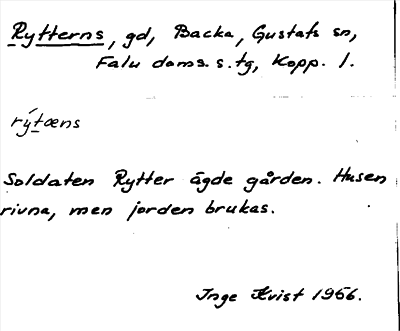 Rytterns, gd, Backa, Gustafs sn,
Falu doms. s. tg, Kopp. l.
rýtæns
Soldaten Rytter ägde gården. Husen
rivna, men jorden brukas.
Inge Kvist 1966.